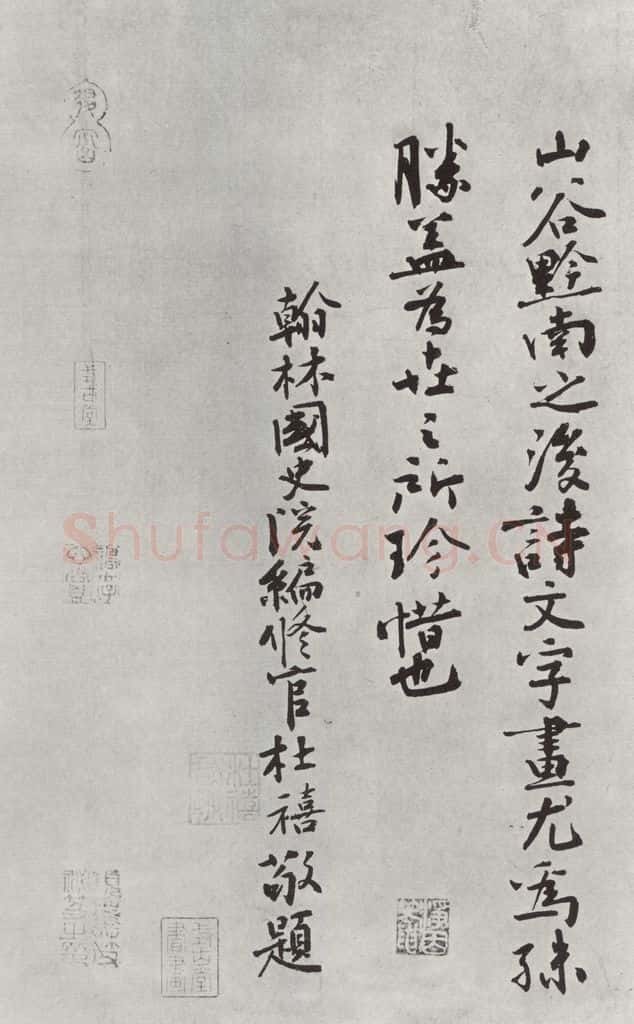 山谷黔南之後詩文字畫尤為殊
勝盖為世之所珍惜也
翰林國史院編修官杜禧敬題
杜禧
Shufawang.CN